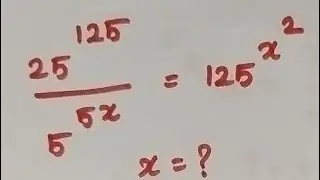 25^125 / 5^5x = 125^x^2
x = ?